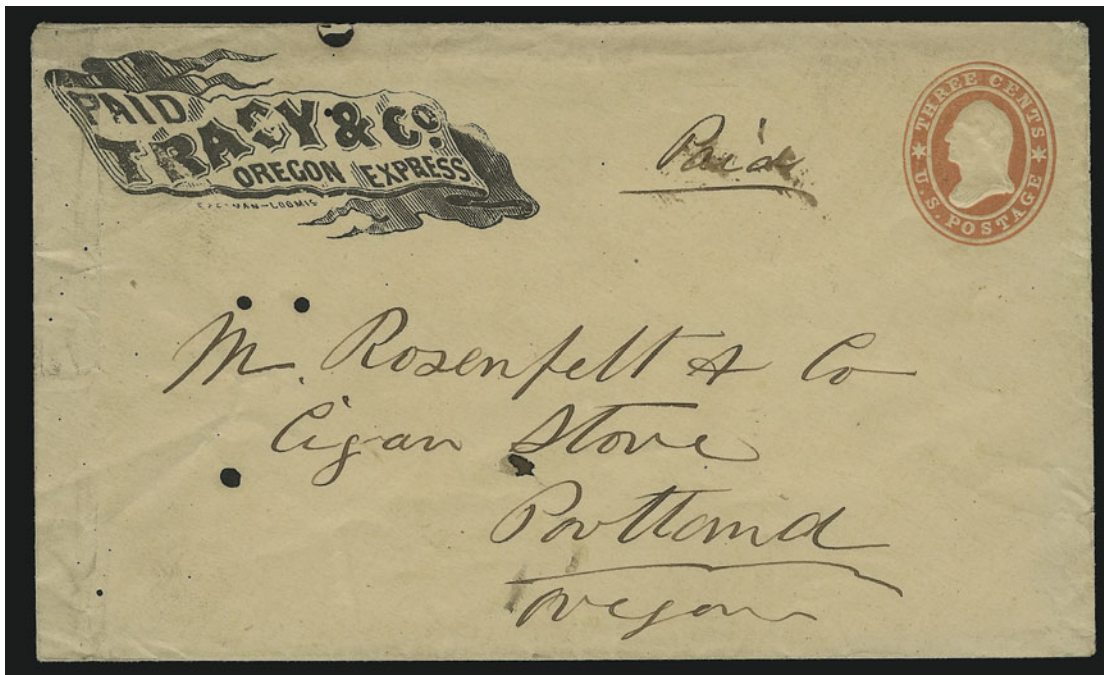 PAID
TRACY & Co.
OREGON EXPRESS
EASTMAN-LOOMIS
Paid
THREE CENTS
U.S. POSTAGE
M. Rosenfelt & Co
Cigar Store
Portland
Oregon